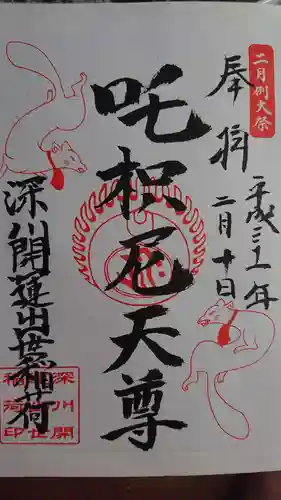 二月例大祭
奉拝
平成三十一年
二月十日
吒枳尼天尊
深川開運出世稲荷
深川開
稲荷印